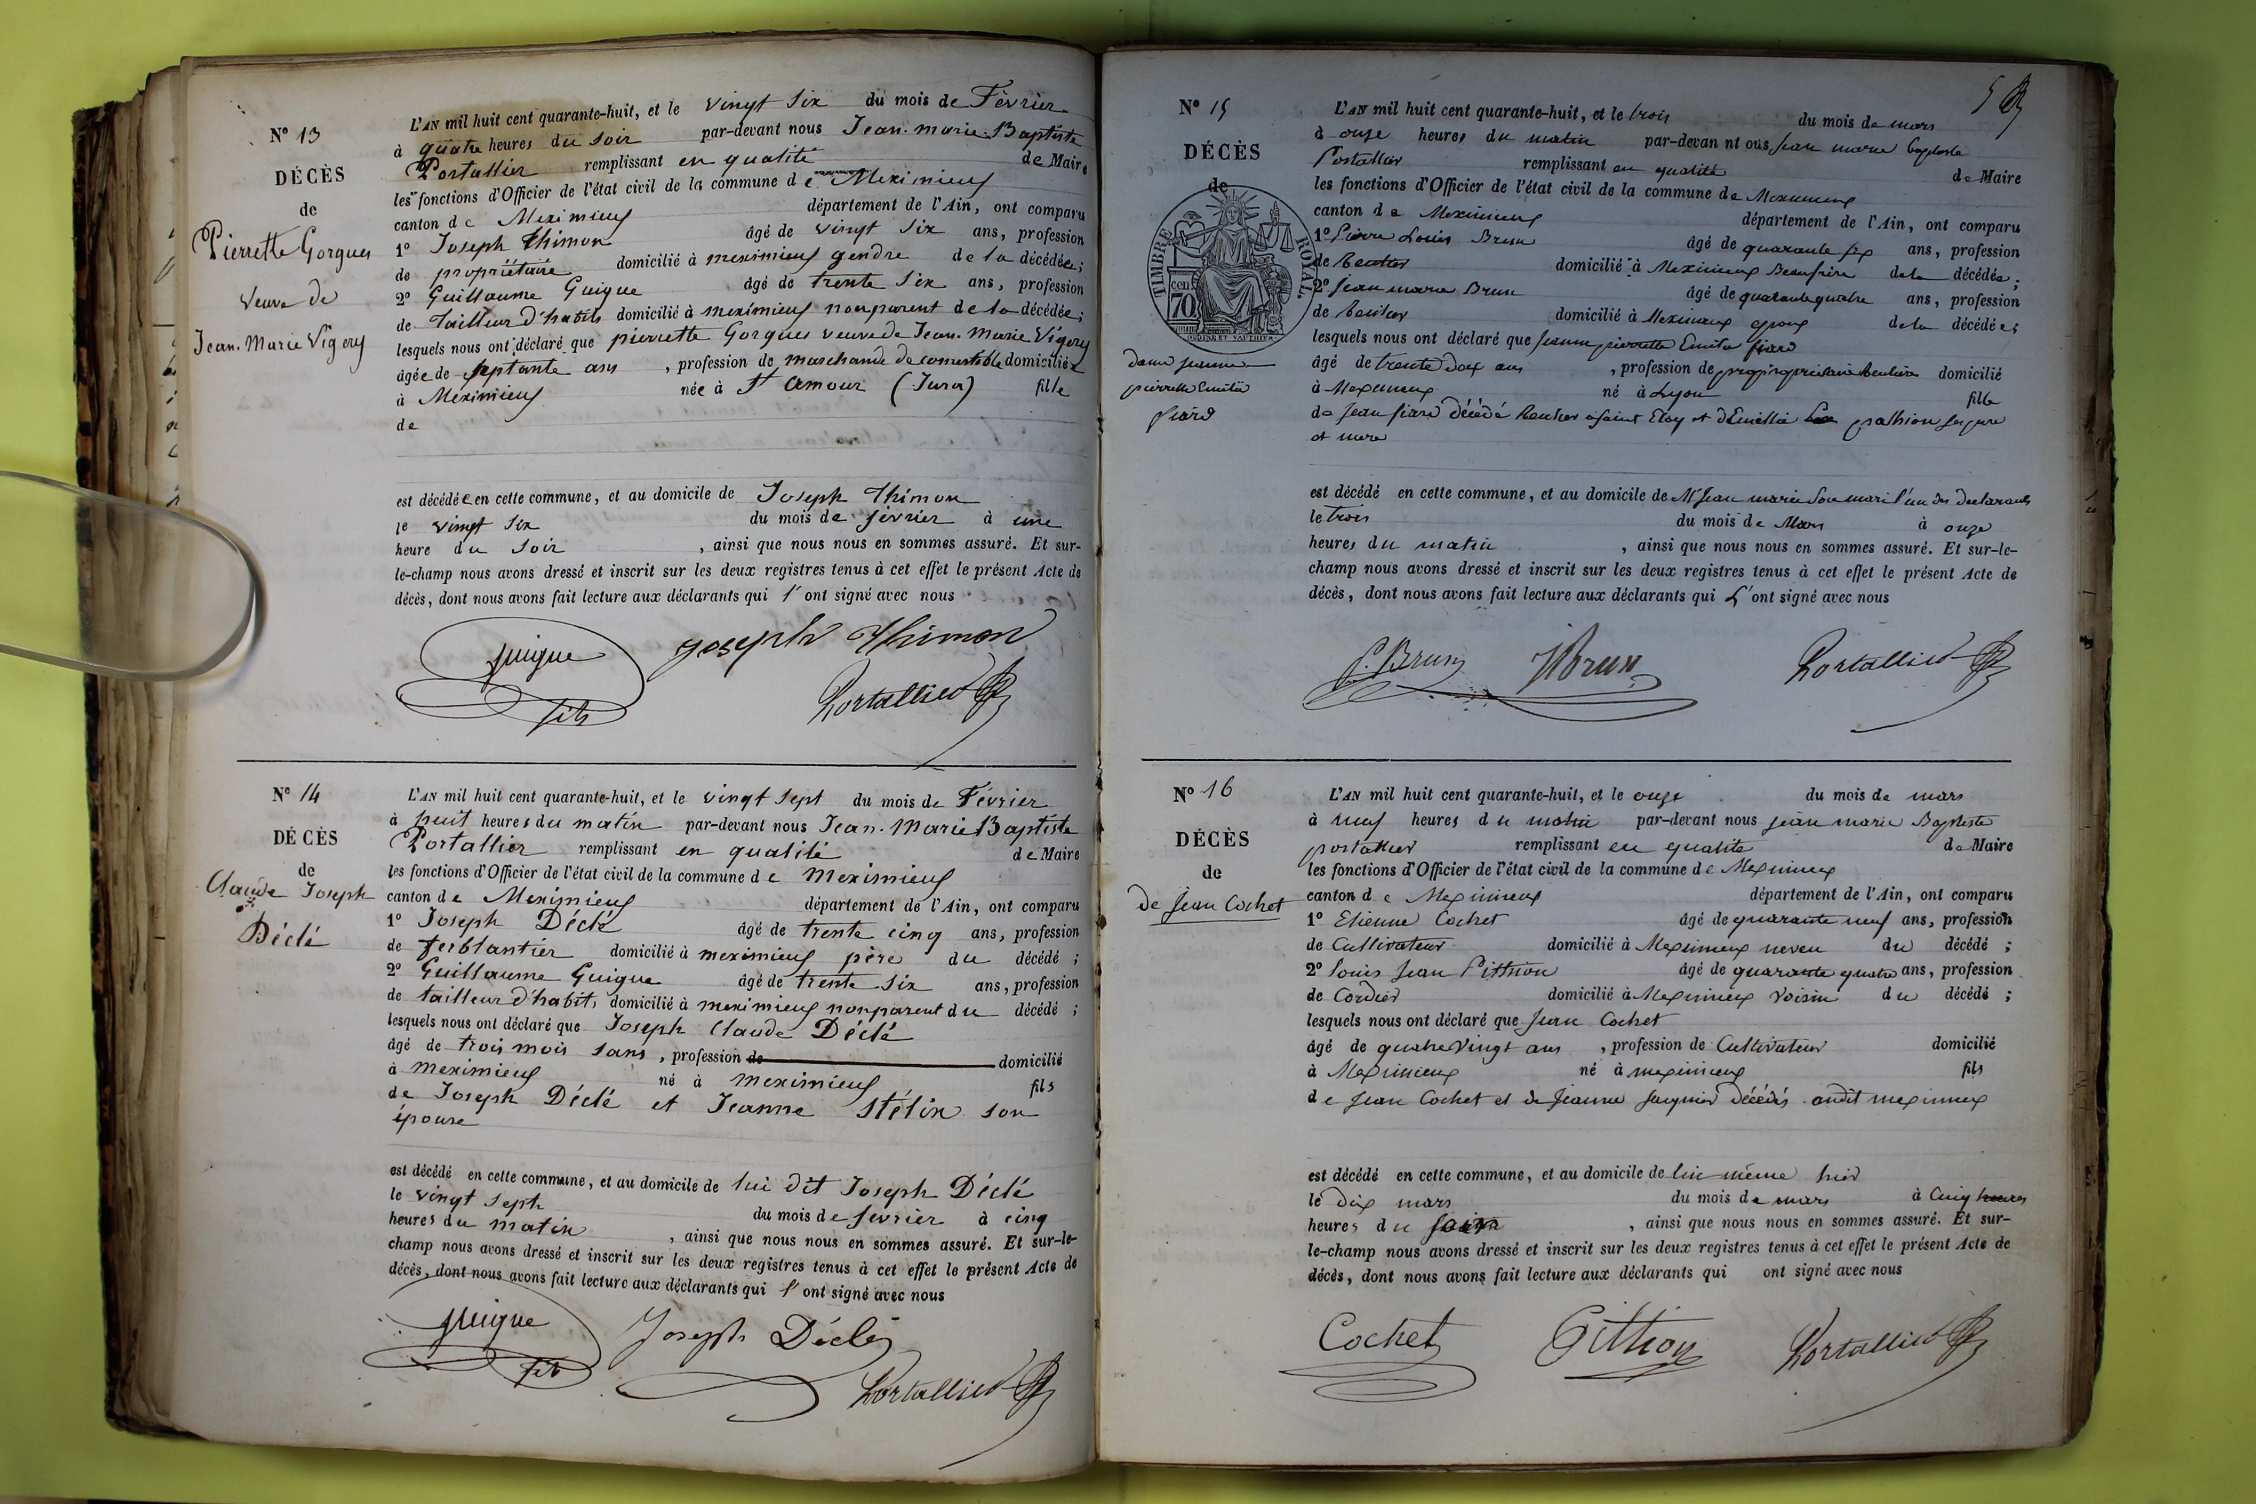 N° 13
DÉCÈS
de
Pierrette Gorgues
veuve de
Jean-Marie Vigery
L'AN mil huit cent quarante-huit, et le vingt six du mois de Février
à quatre heures du soir par-devant nous Jean-marie-Baptiste
Portallier remplissant en qualité de Maire
les fonctions d'Officier de l'état civil de la commune de Meximieux
canton de Meximieux département de l'Ain, ont comparu
1° Joseph Thimon âgé de vingt six ans, profession
de propriétaire domicilié à meximieux gendre de la décédée;
2° Guillaume Guigue âgé de trente six ans, profession
de tailleur d'habits domicilié à meximieux non parent de la décédée;
lesquels nous ont déclaré que pierrette Gorgues veuve de Jean-Marie Vigery
âgée de septante ans, profession de marchande de comestible domiciliée
à Meximieux née à St Amour (Jura) fille
de
est décédée en cette commune, et au domicile de Joseph Thimon
le vingt six du mois de février à une
heure du soir, ainsi que nous nous en sommes assuré. Et sur-
le-champ nous avons dressé et inscrit sur les deux registres tenus à cet effet le présent Acte de
décès, dont nous avons fait lecture aux déclarants qui l'ont signé avec nous
guigue fils joseph Thimon
Portallier
N° 14
DÉCÈS
de
Claude Joseph
Déclé
L'AN mil huit cent quarante-huit, et le vingt sept du mois de Février
à huit heures du matin par-devant nous Jean-Marie Baptiste
Portallier remplissant en qualité de Maire
les fonctions d'Officier de l'état civil de la commune de Meximieux
canton de Meximieux département de l'Ain, ont comparu
1° Joseph Déclé âgé de trente cinq ans, profession
de ferblantier domicilié à meximieux père du décédé;
2° Guillaume Guigue âgé de trente six ans, profession
de tailleur d'habits domicilié à meximieux non parent du décédé;
lesquels nous ont déclaré que Joseph Claude Déclé
âgé de trois mois sans, profession de domicilié
à meximieux né à meximieux fils
de Joseph Déclé et Jeanne Stélin son
épouse
est décédé en cette commune, et au domicile de lui dit Joseph Déclé
le vingt sept du mois de février à cinq
heures du matin, ainsi que nous nous en sommes assuré. Et sur-le-
champ nous avons dressé et inscrit sur les deux registres tenus à cet effet le présent Acte de
décès, dont nous avons fait lecture aux déclarants qui l'ont signé avec nous
guigue fils Joseph Déclé
Portallier
5
N° 15
DÉCÈS
de
TIMBRE ROYAL
70 cen
dame jeanne
pierrette Emilie
fiard
L'AN mil huit cent quarante-huit, et le trois du mois de mars
à onze heures du matin par-devan nt ous jean marie baptiste
Portallier remplissant en qualité de Maire
les fonctions d'Officier de l'état civil de la commune de Meximieux
canton de Meximieux département de l'Ain, ont comparu
1° Pierre Louis Brun âgé de quarante six ans, profession
de Rentier domicilié à Meximieux Beaufrère de la décédée;
2° Jean marie Brun âgé de quarante quatre ans, profession
de Rentier domicilié à Meximieux epoux de la décédée;
lesquels nous ont déclaré que jeanne pierrette Emilie fiard
âgé de trente deux ans, profession de domicilié
à Meximieux né à Lyon fille
de jean fiard décédé Rentier a saint Eloy et d'Emillie prathion ses pere
et mere
est décédé en cette commune, et au domicile de Mr Jean marie son mari l'un des declarants
le trois du mois de Mars à onze
heures du matin, ainsi que nous nous en sommes assuré. Et sur-le-
champ nous avons dressé et inscrit sur les deux registres tenus à cet effet le présent Acte de
décès, dont nous avons fait lecture aux déclarants qui L'ont signé avec nous
P. Brun J Brun Portallier
N° 16
DÉCÈS
de
de Jean Cochet
L'AN mil huit cent quarante-huit, et le onze du mois de mars
à neuf heures du matin par-devant nous jean marie Baptiste
portallier remplissant en qualité de Maire
les fonctions d'Officier de l'état civil de la commune de Meximieux
canton de Meximieux département de l'Ain, ont comparu
1° Etienne Cochet âgé de quarante neuf ans, profession
de Cultivateur domicilié à Meximieux neveu du décédé;
2° Louis Jean Pitthion âgé de quarante quatre ans, profession
de Cordier domicilié à Meximieux voisin du décédé;
lesquels nous ont déclaré que Jean Cochet
âgé de quatre vingt ans, profession de Cultivateur domicilié
à Meximieux né à meximieux fils
de Jean Cochet et de Jeanne décédés audit meximieux
est décédé en cette commune, et au domicile de lui même hier
le dix mars du mois de mars à cinq heures
heures du soir, ainsi que nous nous en sommes assuré. Et sur-
le-champ nous avons dressé et inscrit sur les deux registres tenus à cet effet le présent Acte de
décès, dont nous avons fait lecture aux déclarants qui ont signé avec nous
Cochet Pitthion Portallier